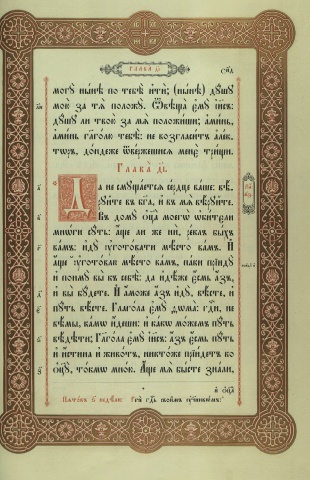 Глава д҃і.
могꙋ̀ ны́нѣ по тебѣ̀ и҆тѝ; (ны́нѣ) дꙋ́шꙋ
мою̀ за тѧ̀ положꙋ̀. Ѿвѣща̀ є҆мꙋ̀ і҆и҃съ:
дꙋ́шꙋ ли твою̀ за мѧ̀ положи́ши; а҆ми́нь,
а҆ми́нь гл҃го́лю тебѣ̀: не возгласи́тъ а҆ле́к-
тѡръ, до́ндеже ѿве́ржешисѧ менє̀ три́щи.
Глава̀ д҃і.
Да не смꙋща́етсѧ се́рдце ва́ше: вѣ́-
рꙋйте въ бг҃а, и҆ въ мѧ̀ вѣ́рꙋйте.
Въ домꙋ̀ ѻ҆ц҃а̀ моегѡ̀ ѡ҆би́тєли
мнѡ́ги сꙋ́ть: а҆́ще ли же нѝ, ре́клъ бы́хъ
ва́мъ: и҆дꙋ̀ ᲂу҆гото́вати мѣ́сто ва́мъ. И҆
а҆́ще ᲂу҆гото́влю мѣ́сто ва́мъ, па́ки прїидꙋ̀
и҆ поимꙋ̀ вы̀ къ себѣ̀: да и҆дѣ́же є҆́смь а҆́зъ,
и҆ вы̀ бꙋ́дете. И҆ а҆́може а҆́зъ и҆дꙋ̀, вѣ́сте, и҆
пꙋ́ть вѣ́сте. Глаго́ла є҆мꙋ̀ ѳѡма̀: гдⷭ҇и, не
вѣ́мы, ка́мѡ и҆́деши: и҆ ка́кѡ мо́жемъ пꙋ́ть
вѣ́дѣти; Глаго́ла є҆мꙋ̀ і҆и҃съ: а҆́зъ є҆́смь пꙋ́ть
и҆ и҆́стина и҆ живо́тъ, никто́же прїи́детъ ко
ѻ҆ц҃ꙋ̀, то́кмѡ мно́ю. А҆́ще мѧ̀ бы́сте зна́ли,
и҆ ѻ҆ц҃а̀